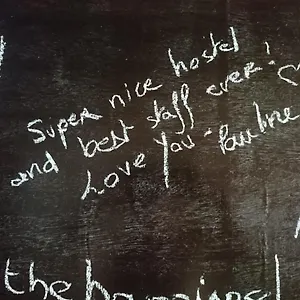 Super nice hostel
and best staff ever! ♡
Love you - Pauline
the happiness!